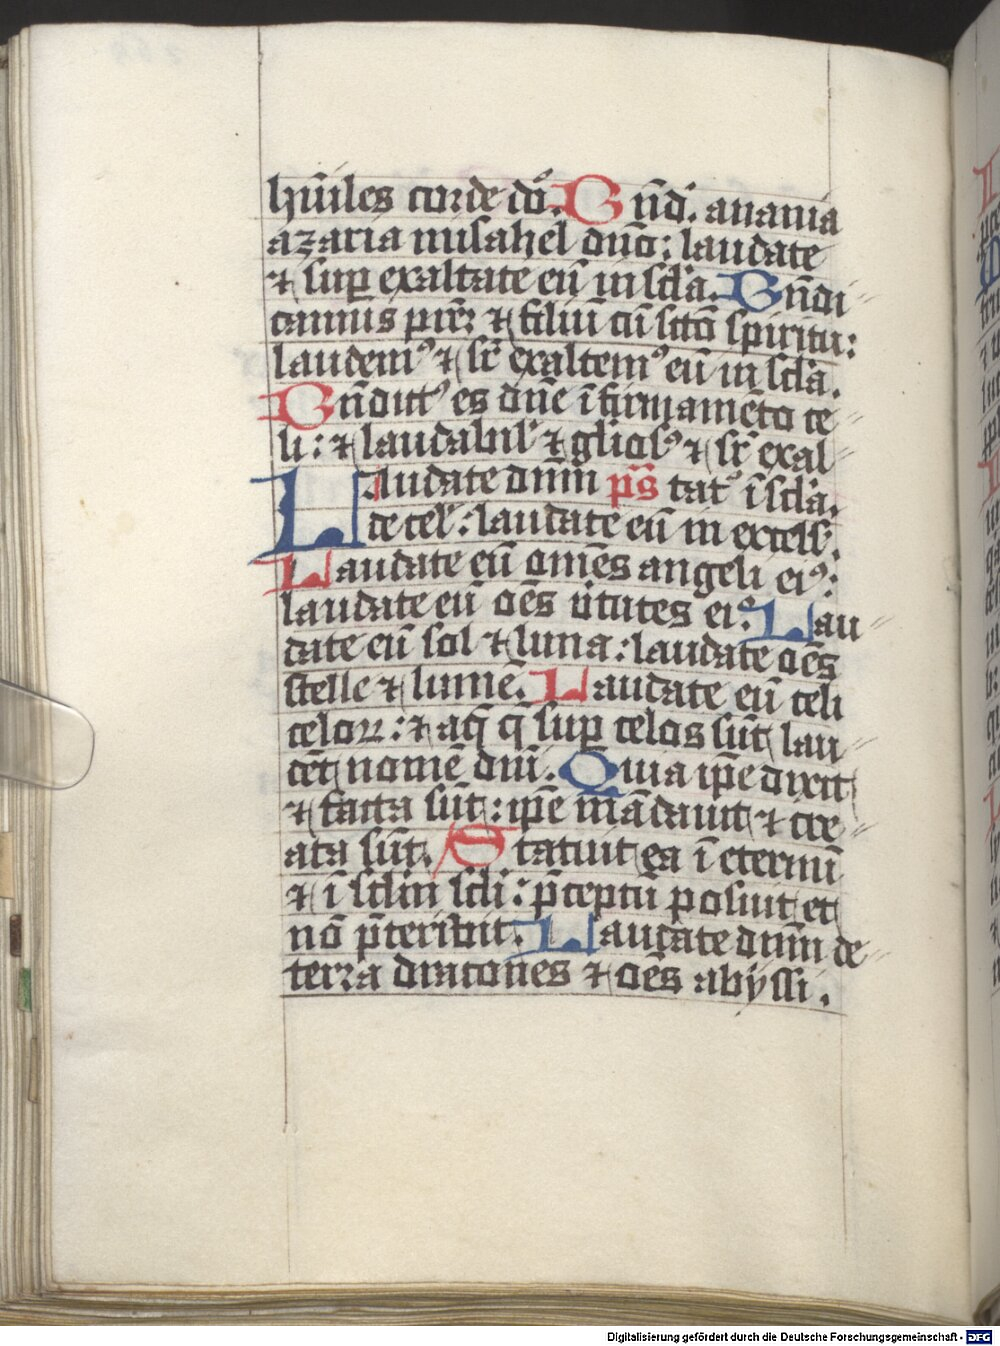 hūiles corde dō. Bn̄d. anania
azaria misahel dn̄o: laudate
⁊ sup exaltate eū in scl̄a. Bn̄di
camus prēz ⁊ filiū cū sctō spiritu:
laudemꝰ ⁊ sr̄ exaltemꝰ eū in scl̄a.
Bn̄dictꝰ es dn̄e ī firmamēto ce
li: ⁊ laudabil' ⁊ gl̄iosꝰ ⁊ sr̄ exal
Laudate dn̄m p̄s tatꝰ ī scl̄a.
de cel': laudate eū in excels'.
Laudate eū om̄es angeli eiꝰ:
laudate eū oēs v̄tutes eiꝰ. Lau
date eū sol ⁊ luna: laudate oēs
stelle ⁊ lumē. Laudate eū celi
celoꝝ: ⁊ aq̄ q̄ sup celos sūt lau
cēt nomē dn̄i. Quia ip̄e dixit
⁊ facta sūt: ip̄e mādauit ⁊ cre
ata sūt. Statuit ea ī eternū
⁊ ī scl̄m scl̄i: p̄ceptū posuit et
nō p̄teribit. Laudate dn̄m de
terra dracones ⁊ oēs abyssi.
Digitalisierung gefördert durch die Deutsche Forschungsgemeinschaft - DFG